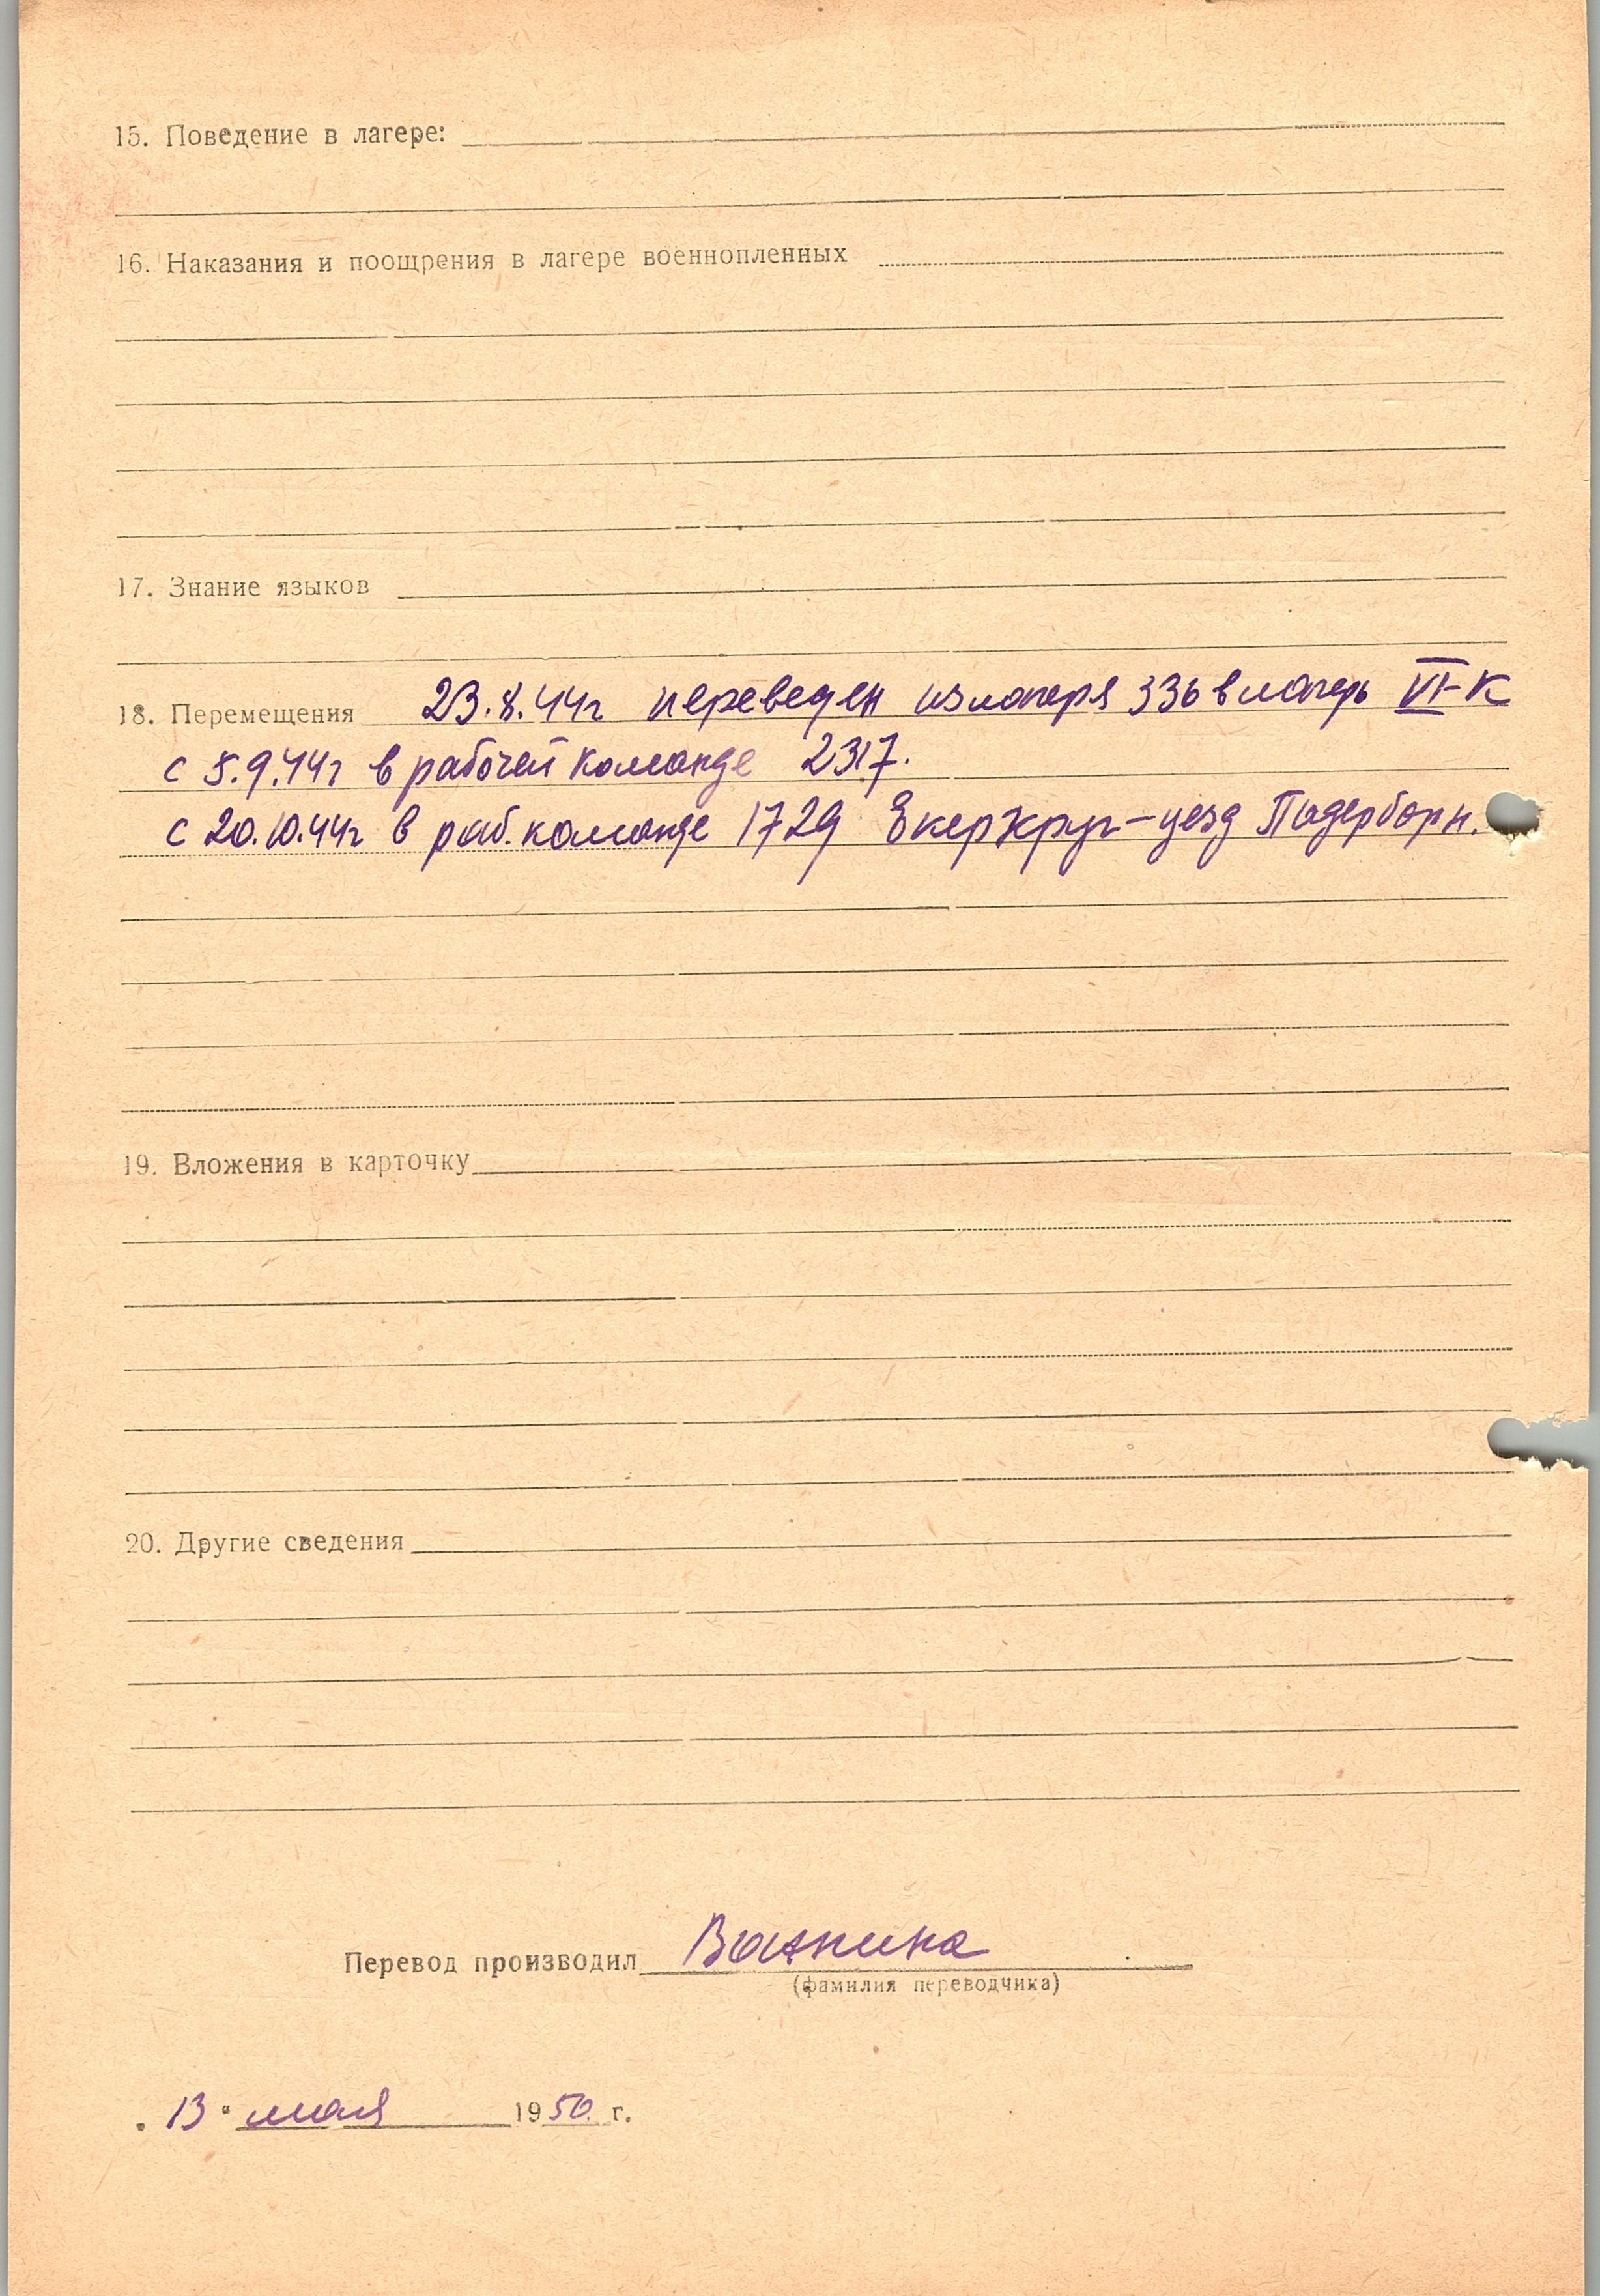 15. Поведение в лагере:
16. Наказания и поощрения в лагере военнопленных
17. Знание языков
18. Перемещения 23.8.44г переведен из лагеря 336 в лагерь VI-К
с 5.9.44г в рабочей команде 2317.
с 20.10.44г в раб. команде 1729 Екеркруг-уезд Падерборн.
19. Вложения в карточку
20. Другие сведения
Перевод производил Важнина
(фамилия переводчика)
„13“ мая 1950 г.